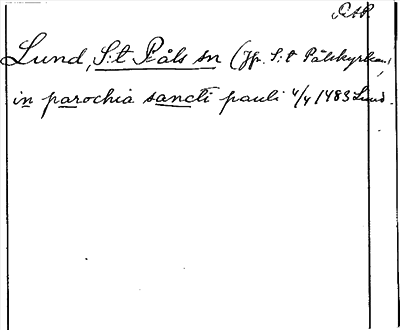 RAP
Lund, S:t Påls sn (Jfr. S:t Pålskyrkan,
in parochia sancti pauli 4/4 1483 Lund.